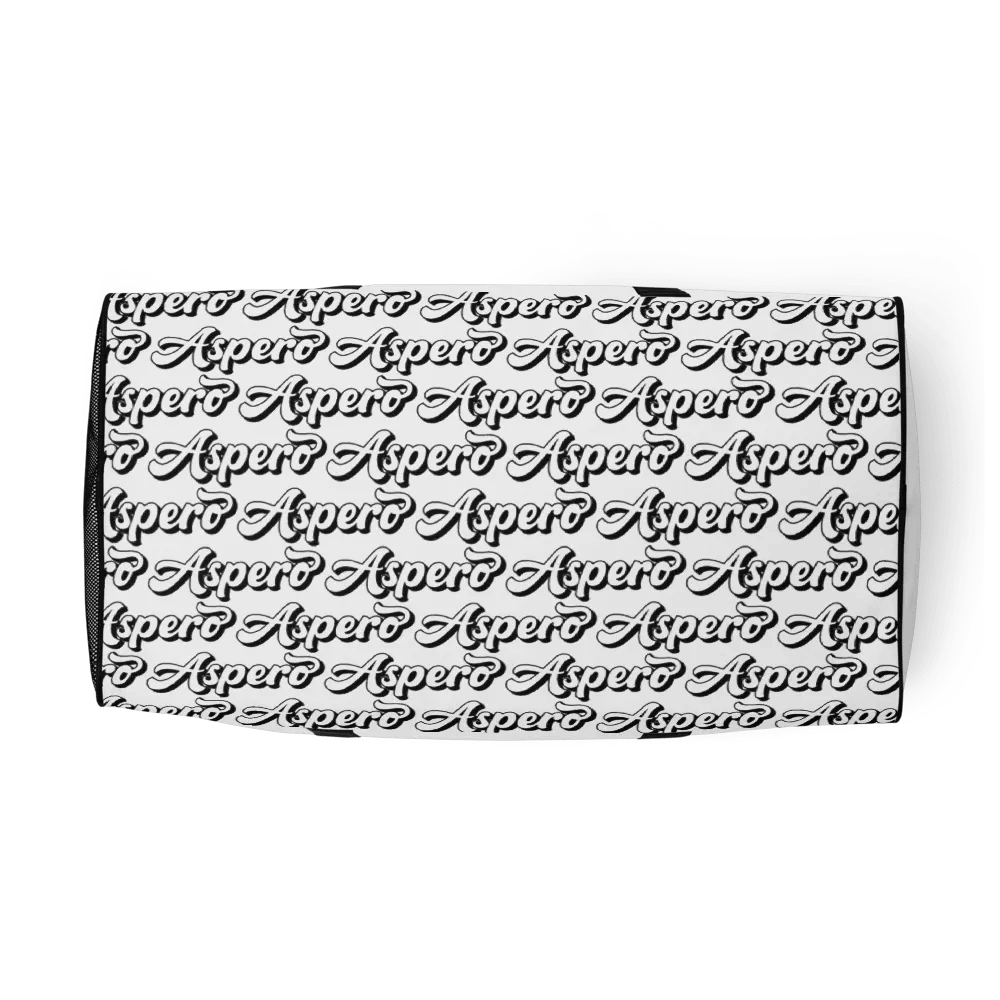 Aspero Aspero Aspero Aspero Aspe
ro Aspero Aspero Aspero Aspero A
Aspero Aspero Aspero Aspero Aspe
ro Aspero Aspero Aspero Aspero A
Aspero Aspero Aspero Aspero Aspe
ro Aspero Aspero Aspero Aspero A
Aspero Aspero Aspero Aspero Aspe
ro Aspero Aspero Aspero Aspero A
Aspero Aspero Aspero Aspero Aspe